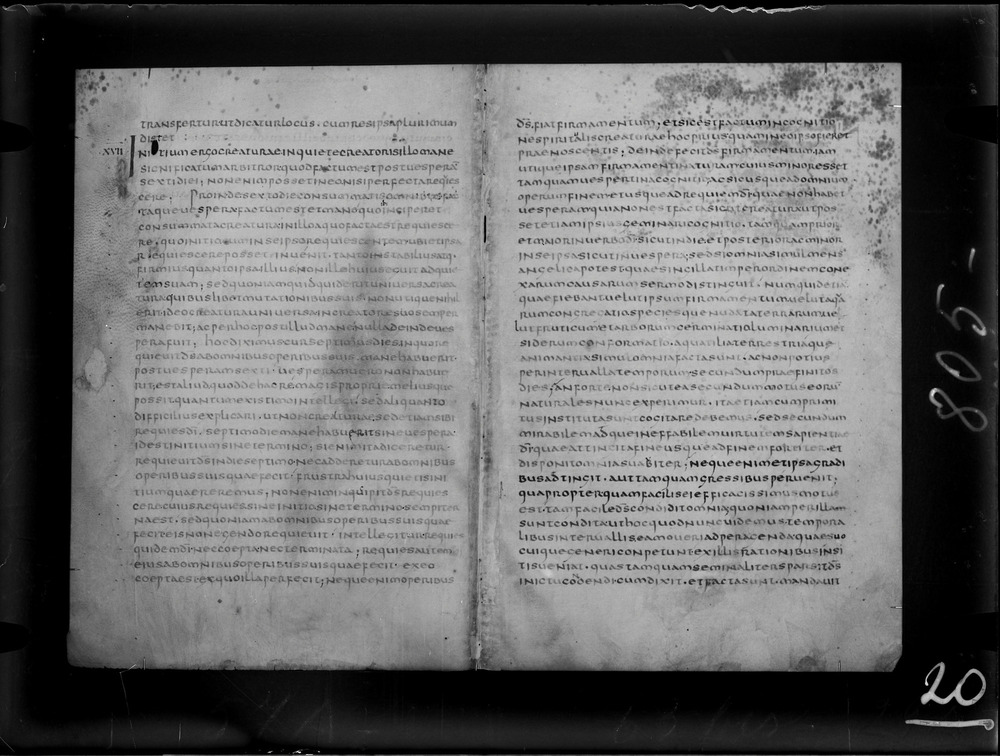 transferturutdicaturlocus · cumresipsaplurimum
distet
XVII Initiumergocreaturaeinquietecreatorisillomane
significatumarbitrorquodfactumestpostuesperā
sextidiei; nonenimpossetincanisiperfectarequies
cere; Proindesextodieconsummatisomnibus
taqueuesperafactumestetmanequoinciperet
consummatacreaturainilloaquofactaestrequiesce
re; quoinitio
requiescereposset inuenit · tantoinstabilius
firmiusquantoipsailliusnonillehuiuseguitadquie
temsuam; sedquoniamquidquideritunsuersacrea
turaquibuslibetmutationibussuis nonutiquenihil
eritideocreaturauniuersaincreatoresuosemper
manebit; acperhocpostilludmanenulladeindeues
perafuit; hocdiximuscurseptimusdiesinquore
quieuitdsabomnibusoperibussuis manehabuerit
postuesperamsexti · uesperamueronon
rit; estaliudquoddehacremagisproprieetmeliusque
possitquantumexistimointellegi sedaliquanto
difficiliusexplicari · utnoncreaturae sedetiamsibi
requiesdi · septimodiemanehabueritsineuespera ·
idestinitiumsinetermino; sienimitadiceretur ·
requieuitdsindieseptimonecadderetur abomnibus
operibussuisquaefecit · frustrahuiusquietisini
tiumquaereremus; nonenimincipitdsrequies
cerecuiusrequiessineinitiosineterminosempiter
naest · sedquoniamabomnibusoperibussuisquae
feciteisnonegendorequieuit · intellegiturrequies
quidemdīneccoeptanecterminata; requiesautem
eiusabomnibusoperibussuisquaefecit · exeo
coeptaestexquoillaperfecit; nequeenimoperibus
dsfiatfirmamentum; etsicestfactumincognitio
nespiritaliscreaturaehocpriusquamineoipsofieret
praenoscentis; deindefecitdsfirmamentumiam
utiqueipsamfirmamentinaturamcuiusminoresset
tamquamuespertinacognitio; acsicusqueadomnium
operumfinemetusqueadrequiemdīquaenonhabet
uesperamquianonestfactasicutcreaturautpos
setetiamipsiusgeminaricognitio · tamquamprior
etmaiorinuerbodīsicutindieetposterioracminor
inseipsasicutinuespera; sedsiomniasimulmens
angelicapotestquaesingillatimperordinemcone
xarumcausarumsermodistinguit · numquidetiā
quaefiebantuelutipsumfirmamentumuelutaquā
rumcongregatiospeciesquenudataterrarumue
lutfruticumetarborumgerminatioluminarumet
siderumconformatio · aquatiliaterrestriaque
animantiasimulomniafactasunt · acnonpotius
perinteruallatemporumsecundumpraefinitos
dies; anforte · nonsicuteasecundummotuseorū
naturalesnuncexperimur · itaetiamcumprimi
tusinstitutasuntcogitaredebemus · sedsecundum
mirabilemadqueineffabilemuirtutemsapientiae
dīquaeattingitafineusqueadfinemfortiter · et
disponitomniasuauiter; nequeenimetipsagradi
busadtingit · auttamquamgressibusperuenit;
quapropterquamfaciliseiefficacissimusmotus
est · tamfaciledscondiditomnia; quoniamperillam
suntconditauthocquodnuncuidemustempora
libusinteruallisseamoueriadperagendaquaesuo
cuiquegenericonpetuntexillisrationibusinsi
tisueniat · quastamquamseminaliterspar sitds
inictucodendicumdixit · etfactasunt · mandauit
805-
20